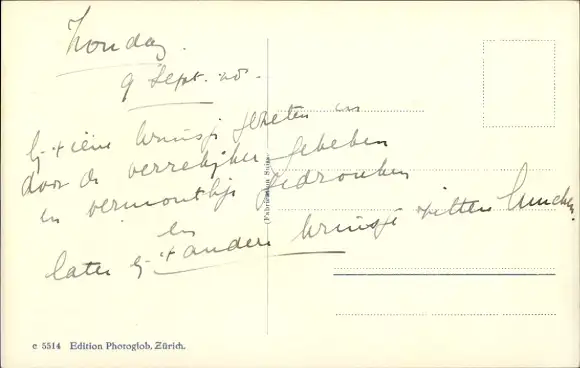 Zondag.
9 Sept. 28.
bij 't eene kruisje gezeten en
door de verrekijker gekeken
en vermouthje gedronken
en
later bij 't andere kruisje zitten lunchen.
(Fabrication Suisse)
c 5514 Edition Photoglob, Zürich.